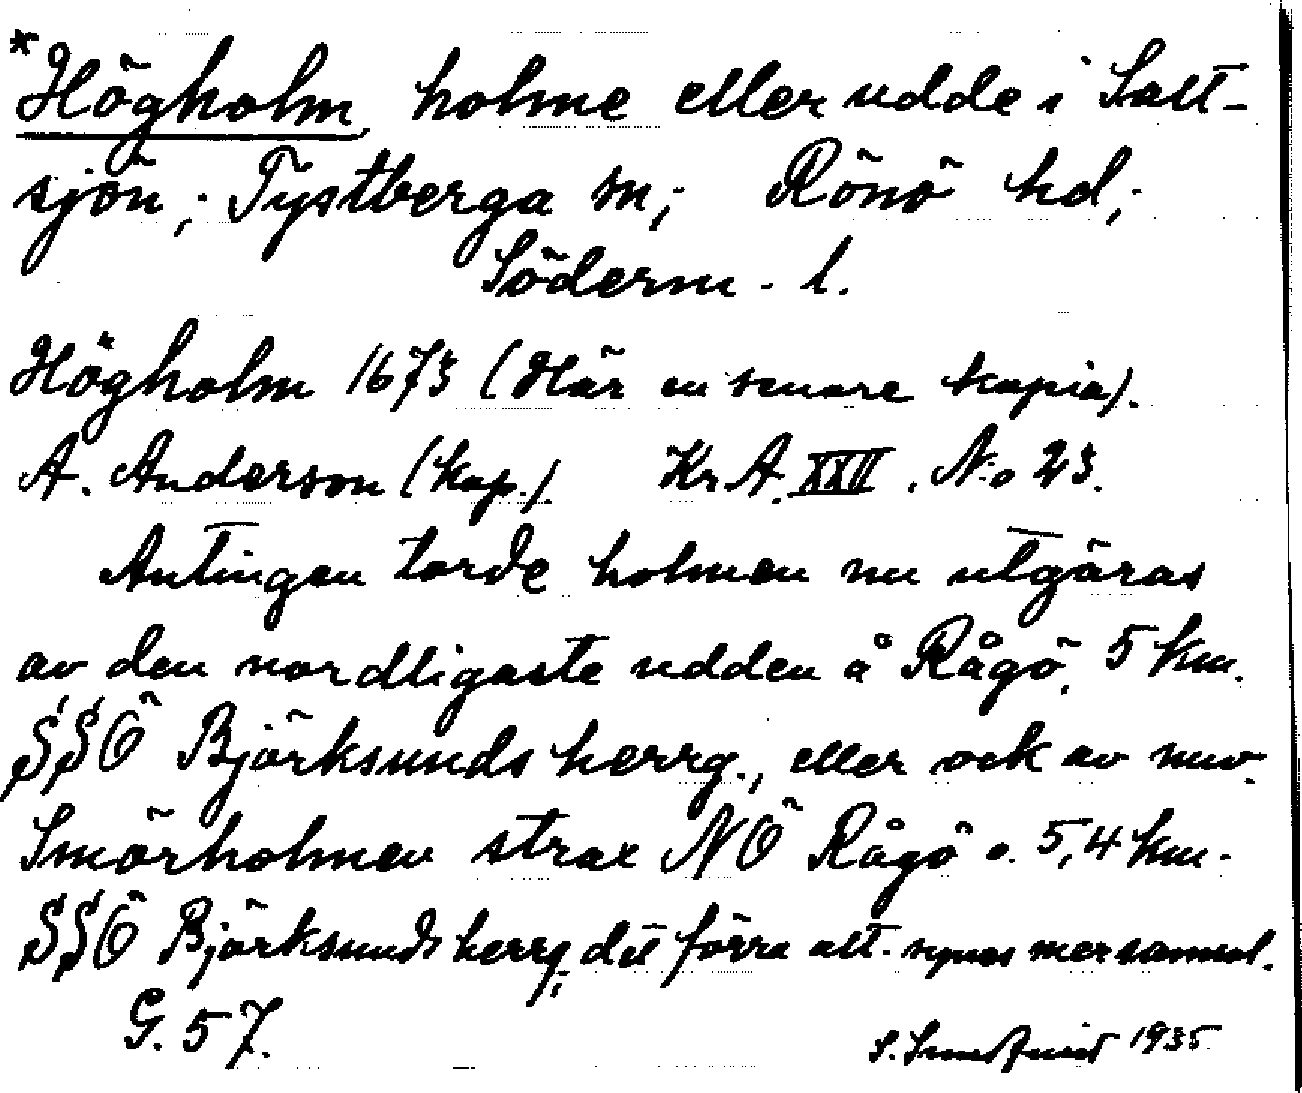 *Högholm, holme eller udde i Salt-
sjön; Tystberga sn; Rönö hd;
Söderm. l.
Högholm 1673 (Här en senare kopia).
A. Anderson (kop.). Kr. A. XXII. No 23.
Antingen torde holmen nu utgöras
av den nordligaste udden å Rågö, 5 km.
SSÖ Björksunds herrg., eller ock av nuv.
Smörholmen strax NÖ Rågö o. 5,4 km.
SSÖ Björksunds herrg; det förra alt. synes mer sannol.
G. 57.
S. 1935